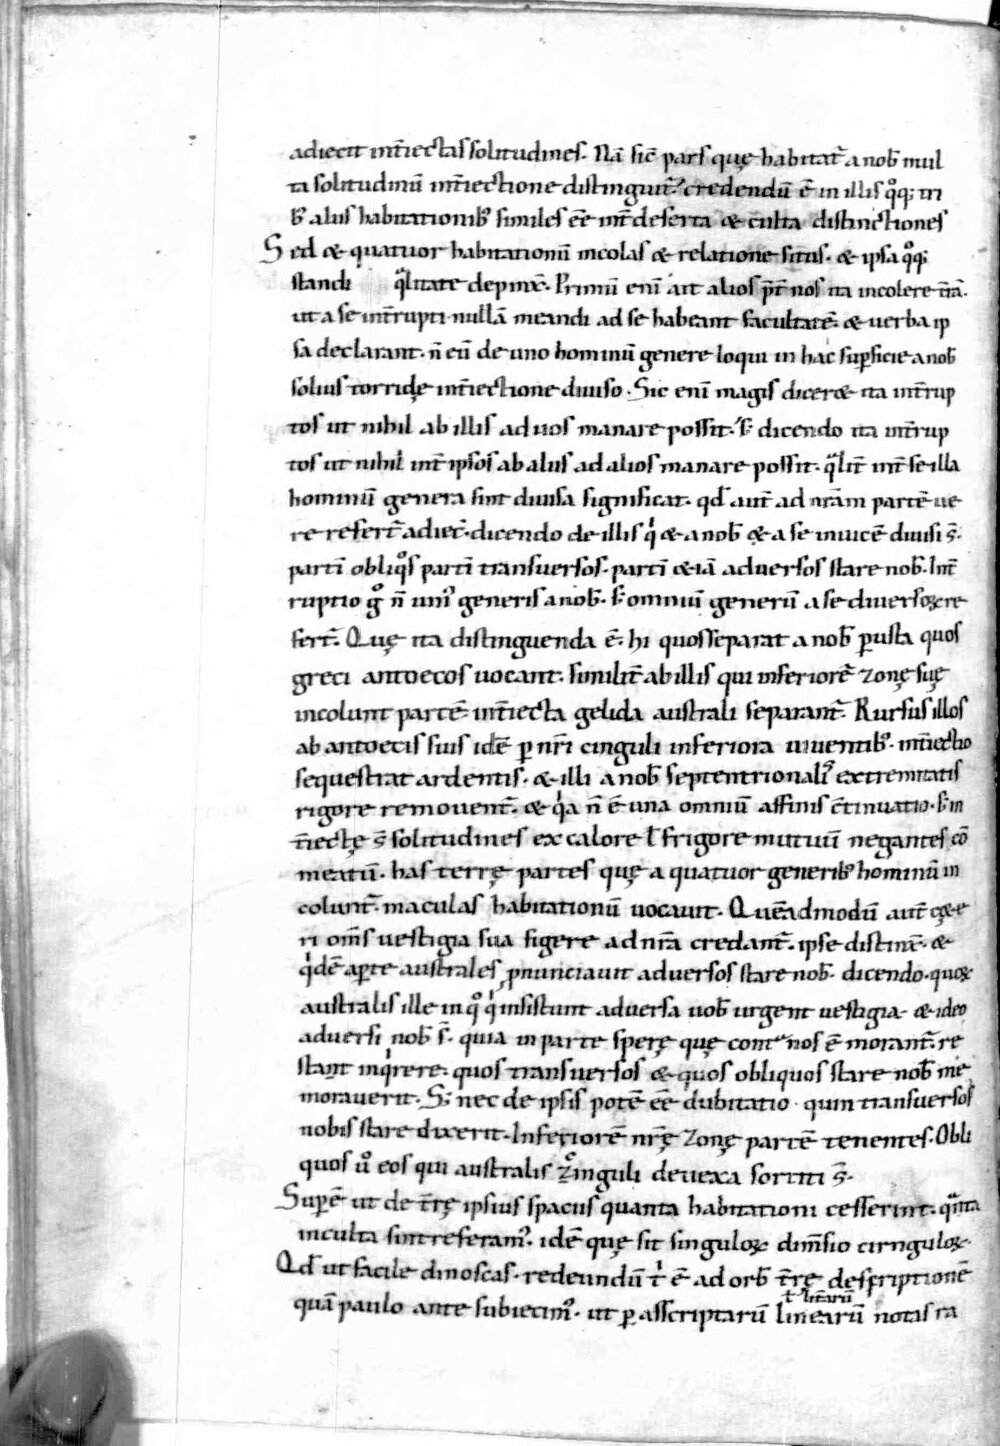 adiecit int̄iectas solitudines. Nā sic̄ pars quę habitat᷑ a nob̄ mul
ta solitudinū int̄iectione distinguit᷑. credendū ē in illis qͦq; t̄r
b᷑ aliis habitationib᷑ similes eē int̄ deserta & culta distinctiones
Sed & quatuor habitationū incolas & relatione situs. & ipsa qͦq;
standi qͣlitate depinx̄. Primū enī ait alios pt̄ nos ita incolere t̄rā.
ut a se int̄rupti nullā meandi ad se habeant facultatē. & uerba ip
sa declarant. n̄ eū de uno hominū genere loqui in hac suꝑficie a nob̄
solius torridę int̄iectione diuiso. Sic enī magis diceret ita int̄rup
tos ut nihil ab illis ad uos manare possit. s᷑ dicendo ita int̄rup
tos ut nihil int̄ ipsos ab aliis ad alios manare possit. qͣlit̄ int̄ se illa
hominū genera sint diuisa significat. qd̄ aut̄ ad nr̄am partē ue
re refert᷑ adiec̄. dicendo de illis qͥ & a nob̄ & a se inuicē diuisi s̄.
partī obliqͦs partī transuersos. partī & iā aduersos stare nob̄. Int̄
ruptio gͦ n̄ uniꝰ generis a nob̄. s᷑ omniū generū a se diuersoꝝ re
fert᷑. Quę ita distinguenda ē. hi quos separat a nob̄ ꝑusta quos
greci antoecos uocant. similit̄ ab illis qui inferiorē zonę suę
incolunt partē int̄iecta gelida australi separant᷑. Rursus illos
ab antoecis suis idē ꝑ nr̄i cinguli inferiora uiuentib᷑. int̄iectio
sequestrat ardentis. & illi a nob̄ septentrionalis extremitatis
rigore remouent᷑. & qͥa n̄ ē una omniū affinis c̄tinuatio. s᷑ in
t̄iectę s̄ solitudines ex calore l̄ frigore mutuū negantes cō
meatū. has terrę partes quę a quatuor generib᷑ hominū in
colunt᷑. maculas habitationū uocauit. Quēadmodū aut̄ cęte
ri om̄s uestigia sua figere ad nr̄a credant᷑. ipse distinx̄. &
qͥdē aꝑte australes ꝓnunciauit aduersos stare nob̄. dicendo. quoꝝ
australis ille in qͦ qͥ insistunt aduersa uob̄ urgent uestigia. & ideo
aduersi nob̄ s̄. quia in parte sperę quę contͣ nos ē morant᷑. re
stant inqͥrere. quos transuersos & quos obliquos stare nob̄ me
morauerit. S; nec de ipsis potē eē dubitatio quin transuersos
nobis stare dixerit. Inferiorē nr̄ę zonę partē tenentes. Obli
quos uͦ eos qui australis cinguli deuexa sortiti s̄.
Suꝑē ut de t̄rę ipsius spaciis quanta habitationi cesserint. qͣnta
inculta sint referamꝰ. idē quę sit singuloꝝ dim̄sio circuloꝝ.
Qd̄ ut facile dinoscas. redeundū tͥ ē ad orb̄ t̄rę descriptionē
t᷑ lin̄earū
quā paulo ante subiecimꝰ. ut ꝑ asscriptarū linearū notas ra